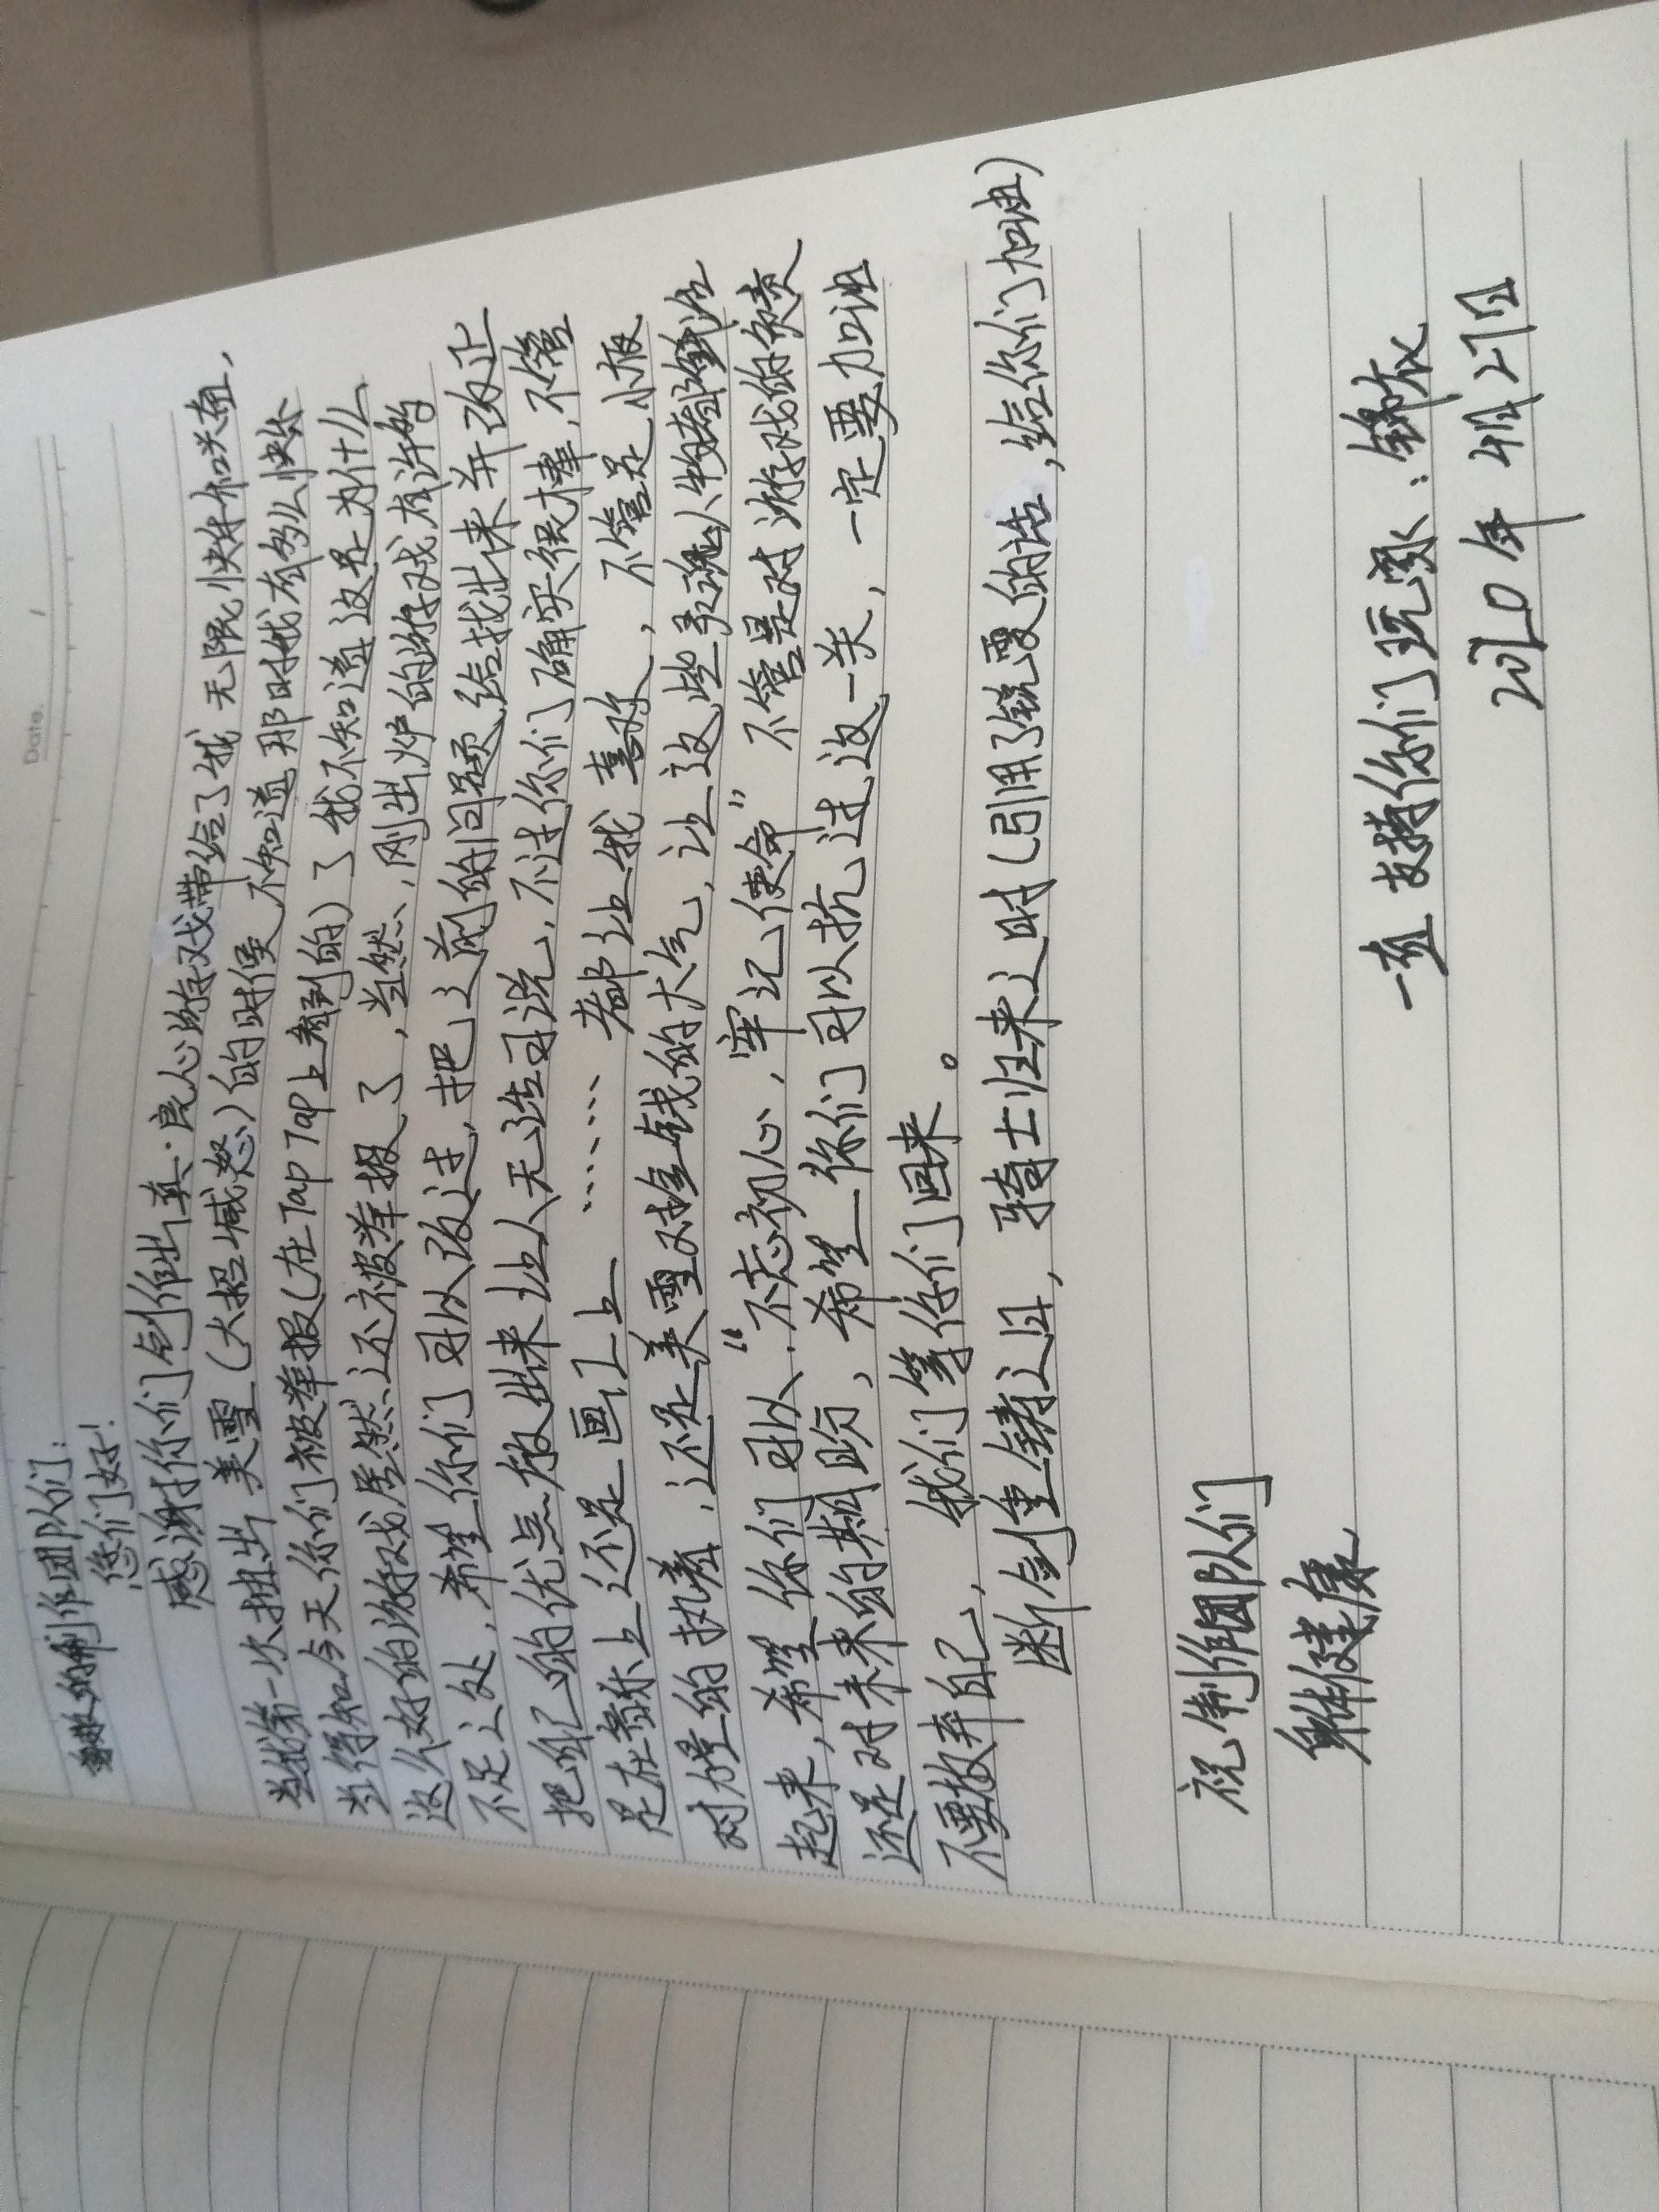 Date. /
亲爱的制作团队们:
您们好!
感谢你们创作出真·良心游戏带给了我无限快乐和关查,
当我第一次抽出美雪(大招·喊怒)的时候不知道那时我有多么快乐
当得知今天你们被举报(在Tap Tap上看到的)了我不知道这是为什么
这么好的游戏居然还被举报了,当然,刚出炉的游戏有许多
不足之处,希望你们可以改过,把之前的问题给找出来并改正
把自己的优点放出来让人无话可说,不过你们确实很棒,不管
是在音乐上还是画工上……都让我喜欢,不管是小板
对力量的执着,还是美雪对金钱的大气,让这些灵魂人物都鲜活
起来,希望你们可以“不忘初心,牢记使命”不管是对游戏的负责
还是对未来的期盼,希望你们可以抗过这一关,一定要加油
不要放弃自己,我们等你们回来。
断剑重铸之日,骑士归来之时(引用了锐雯的话,给你们加油)
祝制作团队们
身体健康
一直支持你们玩家:锦依
2020年4月27日